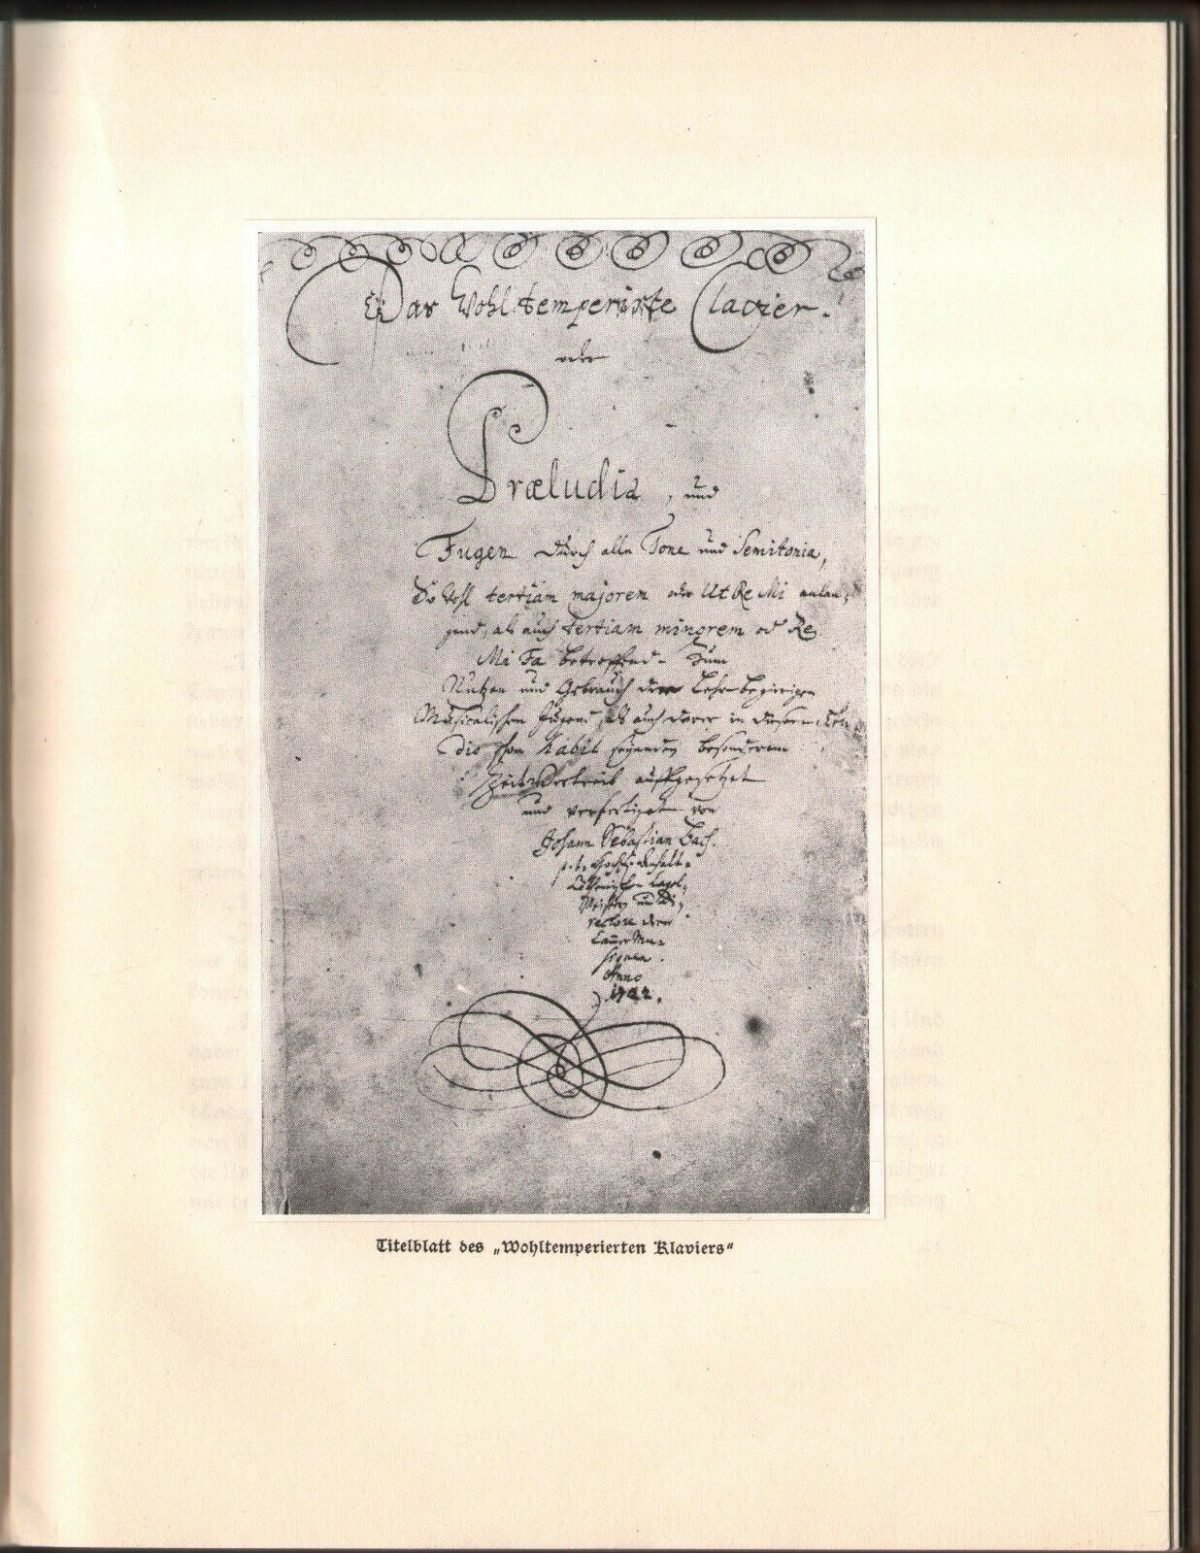 Das Wohltemperirte Clavier.
oder
Præludia, und
Fugen durch alle Tone und Semitonia,
So wohl tertiam majorem oder Ut Re Mi anlan-
gend, als auch tertiam minorem oder Re
Mi Fa betreffend. Zum
Nutzen und Gebrauch der Lehrbegierigen
Musicalischen Jugend, als auch derer in diesem stu-
dio schon habil seyenden besonderem
ZeitVertreib auffgesetzet
und verfertiget von
Johann Sebastian Bach.
p. t. Hochfürstl. Anhalt-
Cöthenischen Capel-
Meistern und Di-
rectore derer
CammerMu-
siquen.
Anno
1722.
Titelblatt des „Wohltemperierten Klaviers“